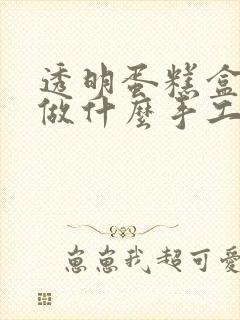 透明蛋糕盒
做什麼手工
崽崽我超可愛